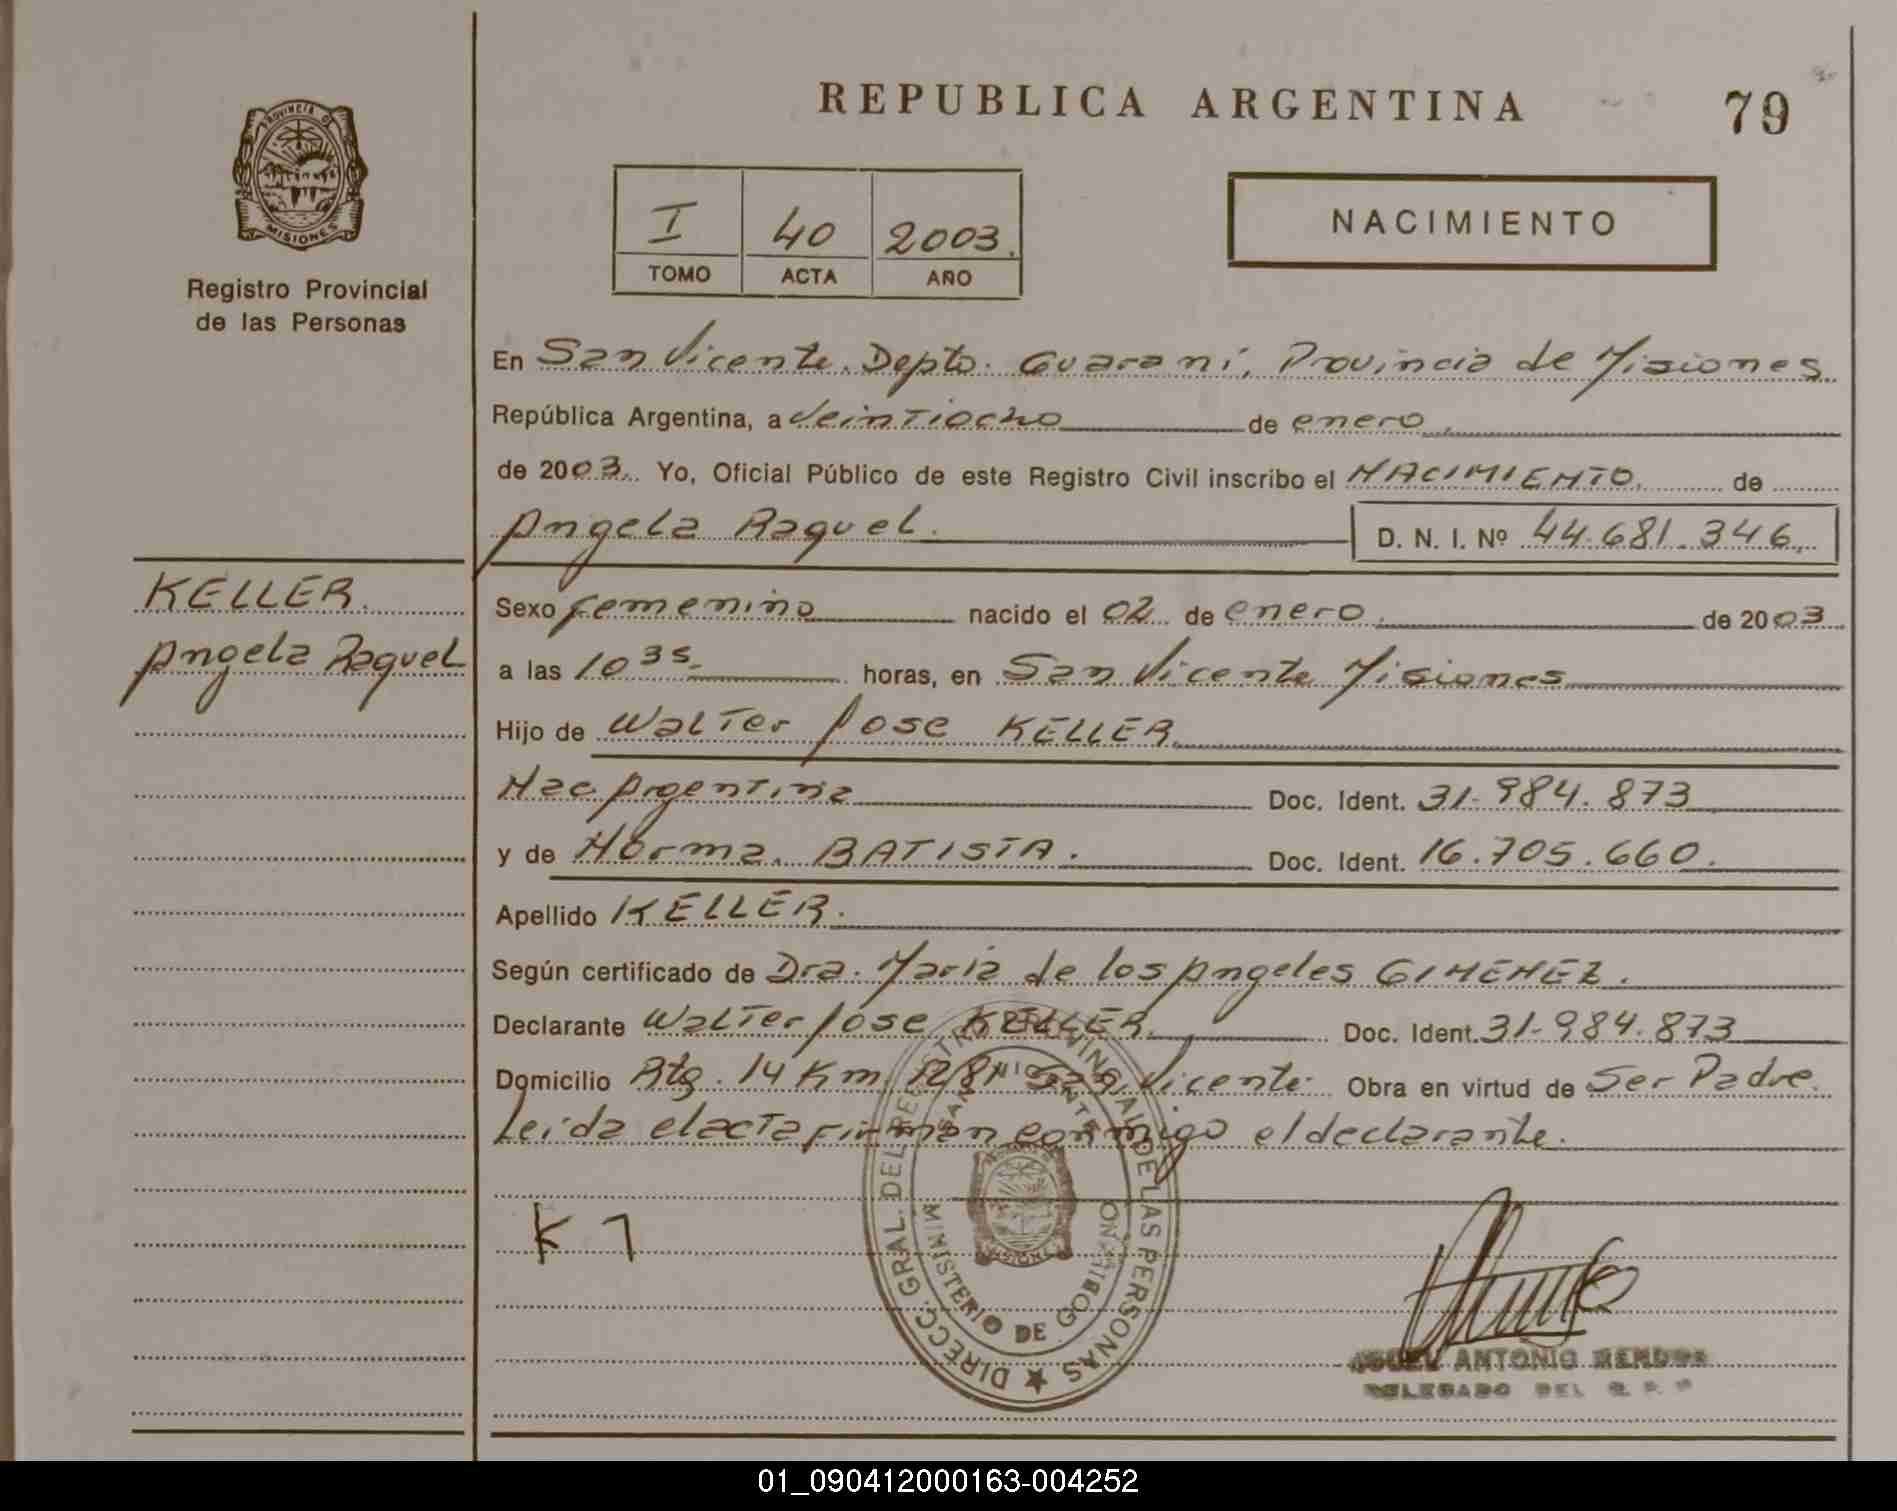 REPUBLICA ARGENTINA
79
PROVINCIA DE
MISIONES
Registro Provincial
de las Personas
I 40 2003.
TOMO ACTA AÑO
NACIMIENTO
En San Vicente. Depto. Guaraní, Provincia de Misiones
República Argentina, a Veintiocho de enero.
de 2003. Yo, Oficial Público de este Registro Civil inscribo el NACIMIENTO. de
Angela Raquel. D. N. I. Nº 44.681.346.
KELLER.
Angela Raquel
Sexo femenino nacido el 02 de enero. de 2003
a las 10 35 horas, en San Vicente Misiones
Hijo de Walter Jose KELLER
Nac Argentina Doc. Ident. 31.984.873
y de Norma. BATISTA. Doc. Ident. 16.705.660.
Apellido KELLER.
Según certificado de Dra. Maria de los Angeles GIMENEZ.
Declarante Walter Jose KELLER. Doc. Ident. 31.984.873
Domicilio Rta. 14 Km San Vicente. Obra en virtud de Ser Padre.
Leida el acta firman conmigo el declarante.
DIRECC. GRAL. DEL REGISTRO PROVINCIAL DE LAS PERSONAS
SAN VICENTE
MISIONES
MINISTERIO DE GOBIERNO
K 7
ANTONIO
DELEGADO DEL R. P. P
01_090412000163-004252